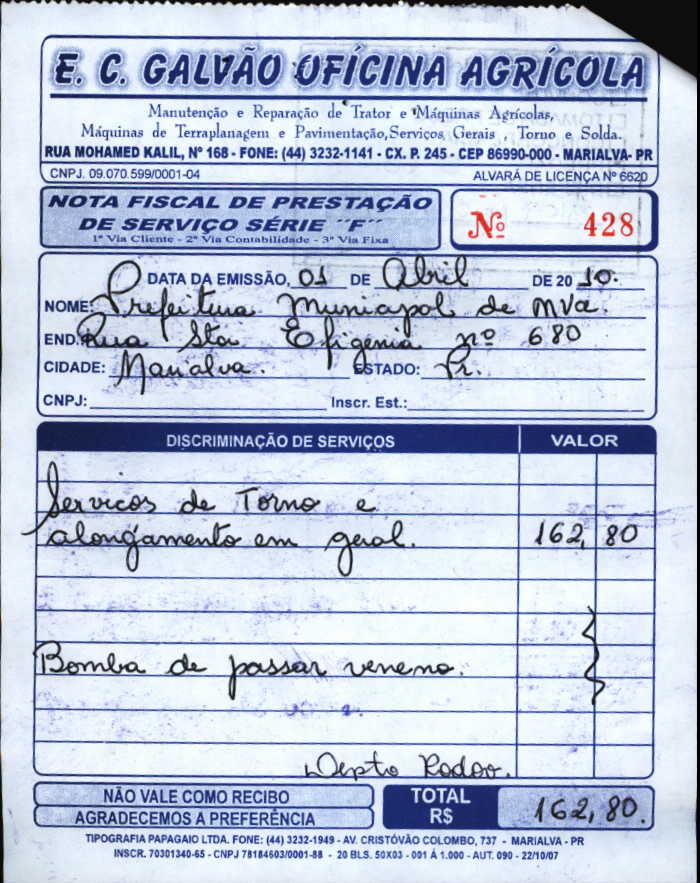 E. C. GALVÃO OFÍCINA AGRÍCOLA
Manutenção e Reparação de Trator e Máquinas Agrícolas,
Máquinas de Terraplanagem e Pavimentação, Serviços Gerais Torno e Solda.
RUA MOHAMED KALIL, Nº 168 - FONE: (44) 3232-1141 - CX. P. 245 - CEP 86990-000 - MARIALVA- PR
CNPJ. 09.070.599/0001-04 ALVARÁ DE LICENÇA Nº 6620
NOTA FISCAL DE PRESTAÇÃO
DE SERVIÇO SÉRIE "F"
1ª Via Cliente - 2ª Via Contabilidade - 3ª Via Fixa
Nº 428
DATA DA EMISSÃO, 01 DE Abril DE 2010.
NOME: Prefeitura Municipal de Mva.
END. Rua Sta Efigenia nº 680
CIDADE: Marialva. ESTADO: Pr.
CNPJ: Inscr. Est.:
DISCRIMINAÇÃO DE SERVIÇOS VALOR
Servicos de Torno e
alongamento em geral. 162,80
Bomba de passar veneno.
Depto Rodov.
NÃO VALE COMO RECIBO
AGRADECEMOS A PREFERÊNCIA
TOTAL
R$ 162,80.
TIPOGRAFIA PAPAGAIO LTDA. FONE: (44) 3232-1949 - AV. CRISTÓVÃO COLOMBO, 737 - MARIALVA - PR
INSCR. 70301340-65 - CNPJ 78184603/0001-88 - 20 BLS. 50X03 - 001 Á 1.000 - AUT. 090 - 22/10/07